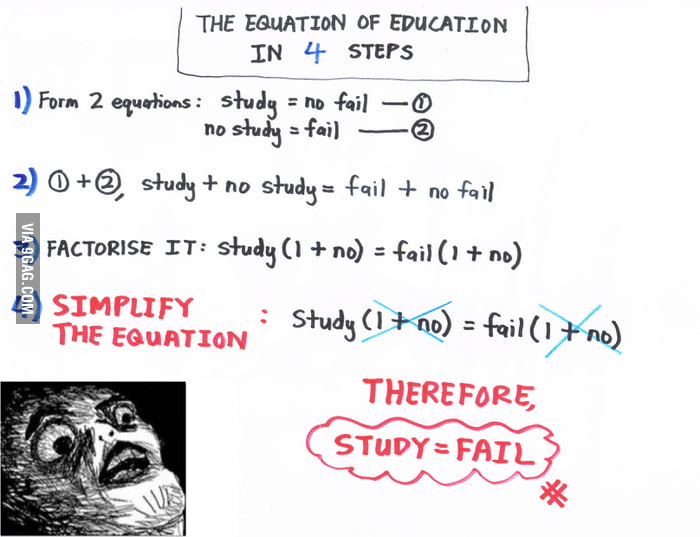 THE EQUATION OF EDUCATION
IN 4 STEPS
1) Form 2 equations: study = no fail — ①
no study = fail — ②
2) ① + ②, study + no study = fail + no fail
3) FACTORISE IT: study (1 + no) = fail (1 + no)
4) SIMPLIFY THE EQUATION : study (1 + no) = fail (1 + no)
THEREFORE,
STUDY = FAIL
#
VIA 9GAG.COM